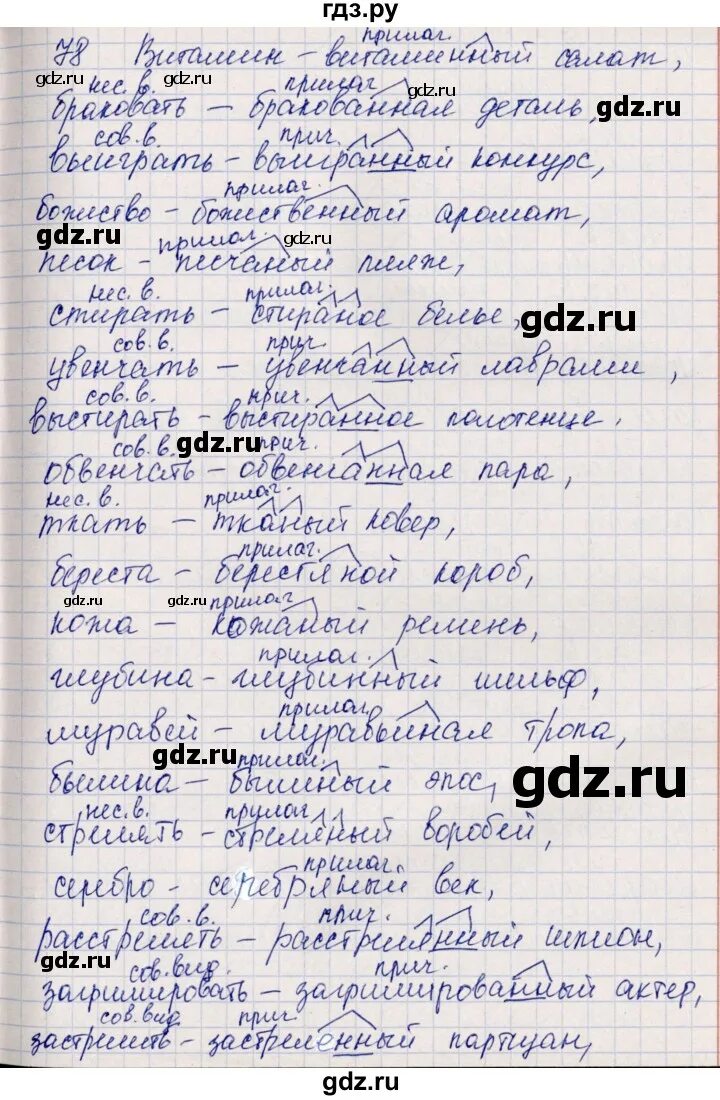 гдз.ру
прилаг.
78 Витамин – витаминный салат,
gdz.ru нес. в. прилаг. gdz.ru
браковать – бракованная деталь, gdz.ru
сов. в. прич.
выиграть – выигранный конкурс,
прилаг.
божество – божественный аромат,
gdz.ru прилаг. gdz.ru
песок – песчаный пляж,
нес. в. прилаг.
стирать – стираное белье, gdz.ru
сов. в. прич.
увенчать – увенчанный лаврами,
сов. в. прич.
выстирать – выстиранное полотенце.
сов. в. gdz.ru прич.
обвенчать – обвенчанная пара,
нес. в. прилаг.
ткать – тканый ковер,
прилаг.
береста – берестяной короб,
gdz.ru gdz.ru прилаг. gdz.ru
кожа – кожаный ремень,
прилаг.
глубина – глубинный шельф,
прилаг.
муравей – муравьиная тропа,
gdz.ru прилаг. gdz.ru
былина – былинный эпос,
нес. в. прилаг.
стрелять – стреляный воробей,
прилаг.
серебро – серебряный век,
сов. в. прич.
расстрелять – расстрелянный шпион,
gdz.ru сов. вид. прич. gdz.ru
загримировать – загримированный актер,
сов. вид прич.
застрелить – застреленный партизан,
gdz.ru